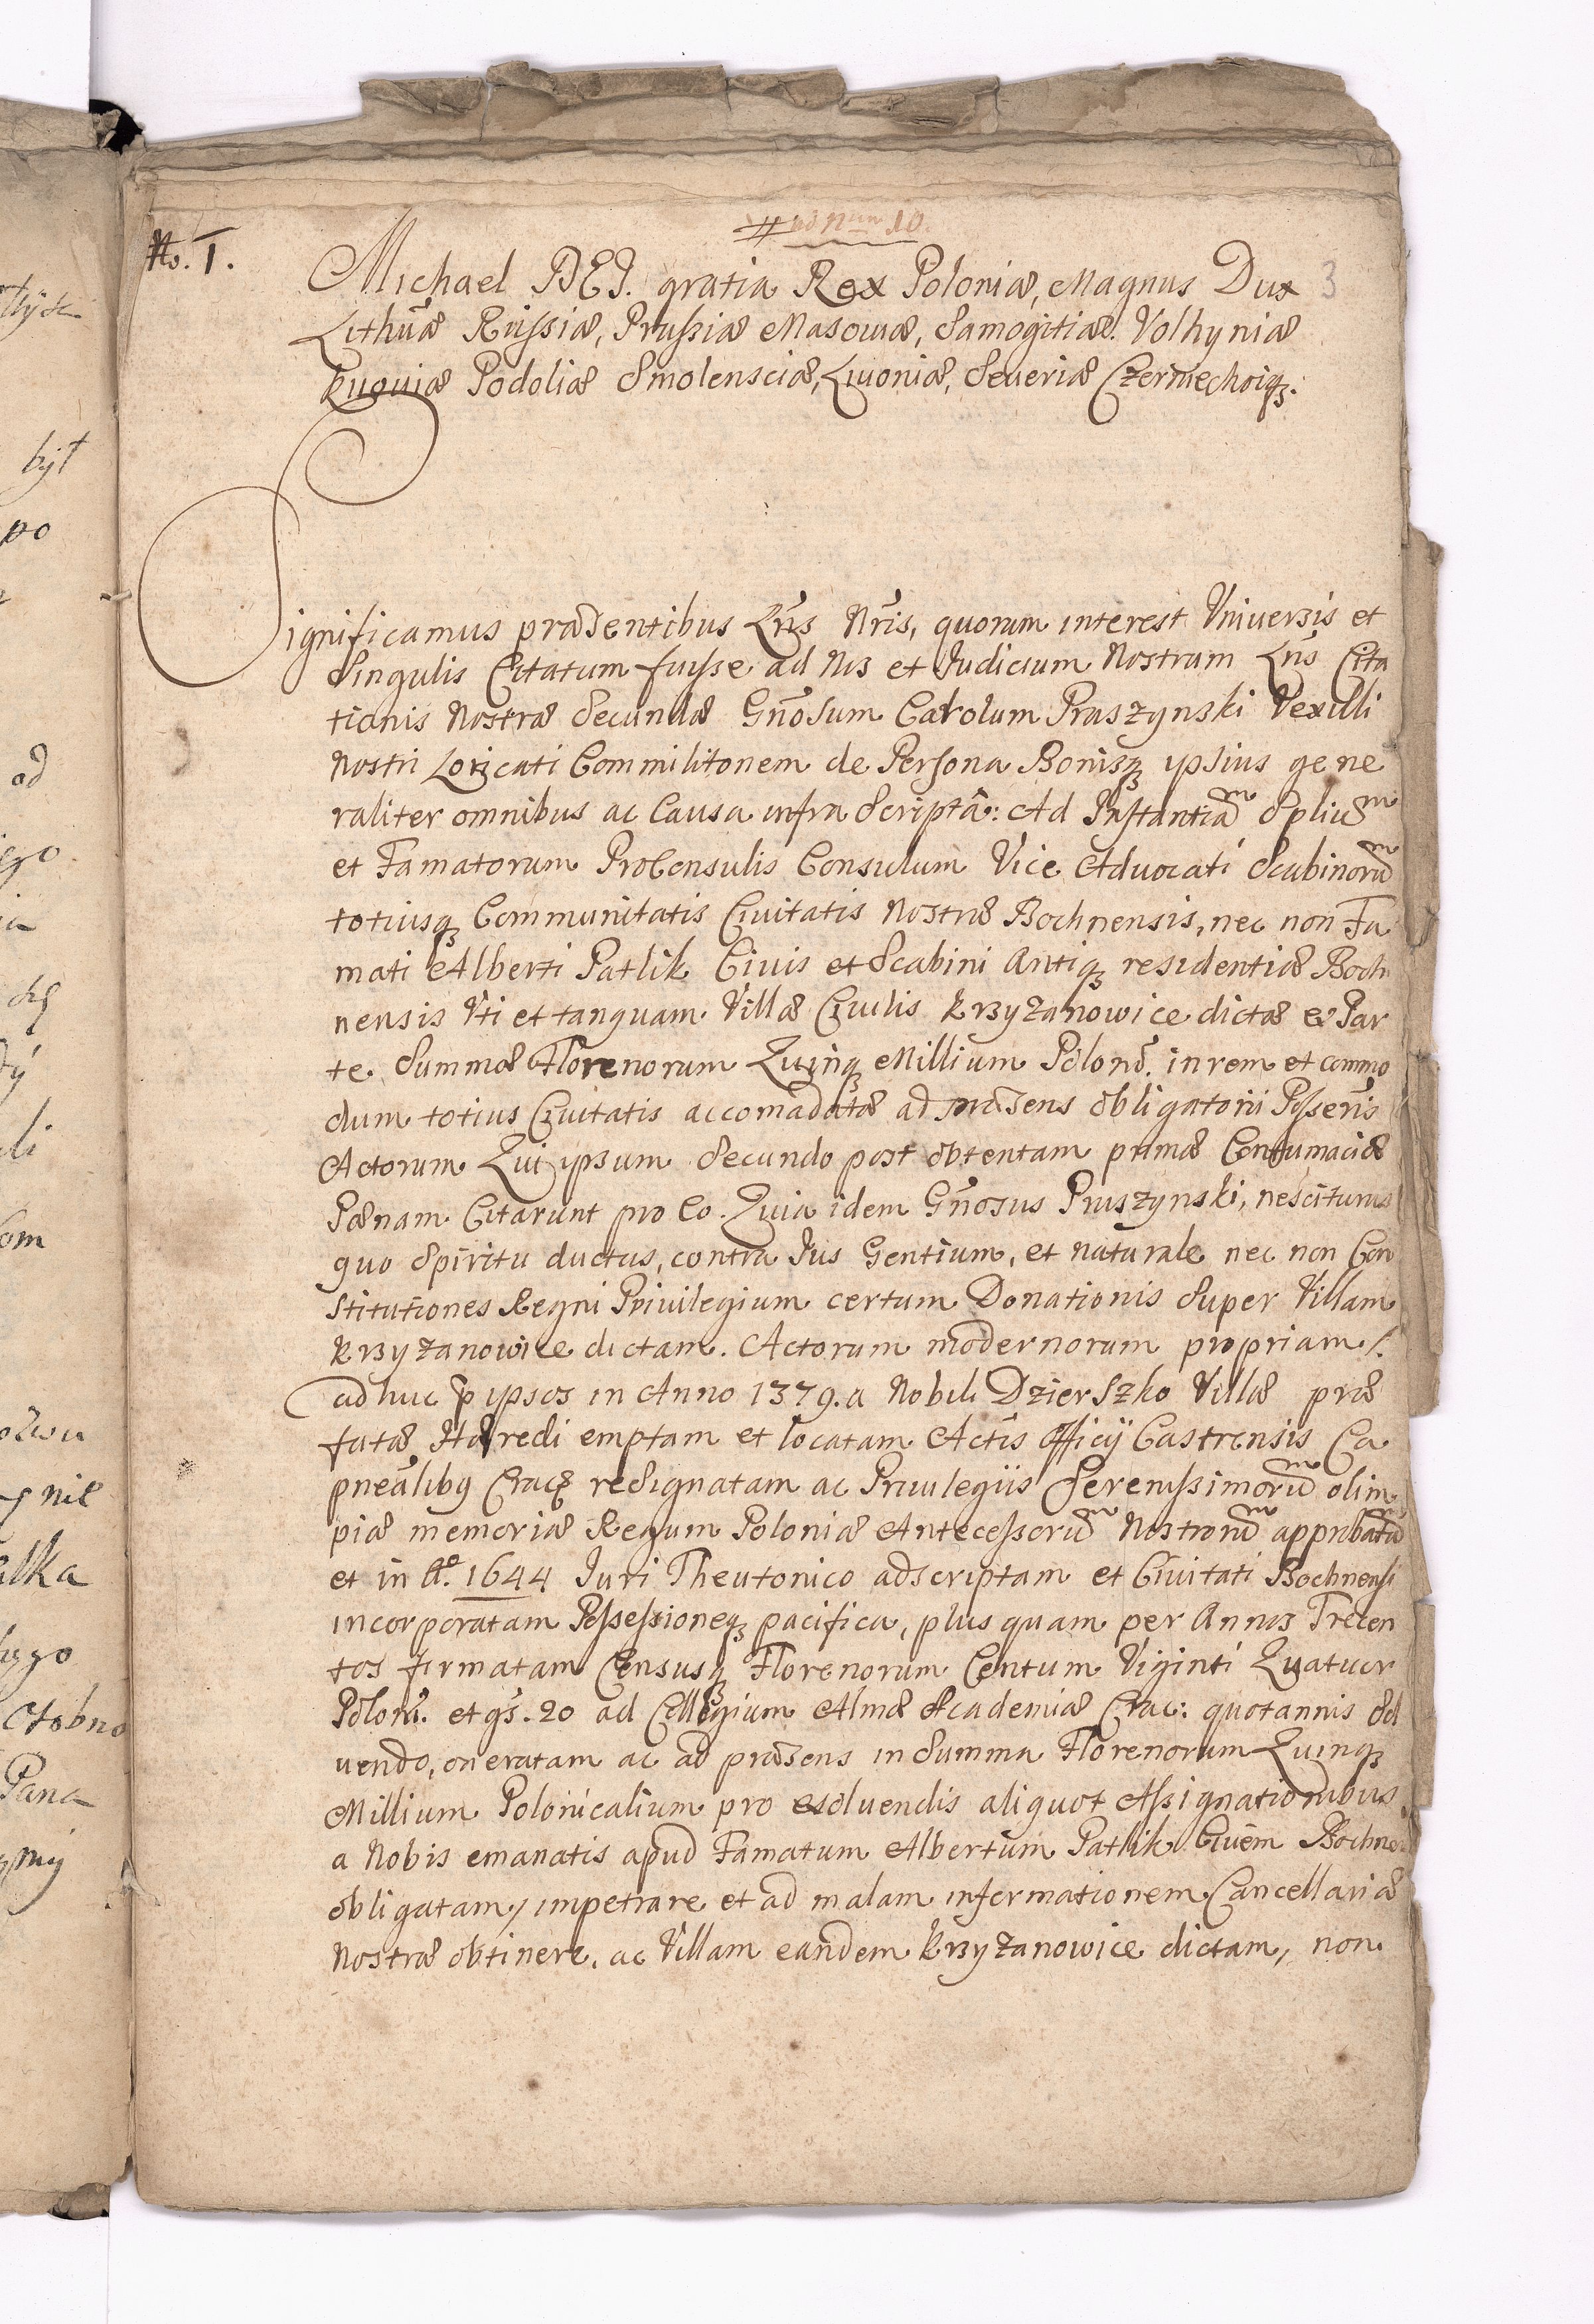 No. 1.
# ad Num 10.
Michael DEI. gratia Rex Poloniæ, Magnus Dux 3
Lithuæ Russiæ, Prussiæ Masoviæ, Samogitiæ. Volhyniæ
Kijoviæ Podoliæ Smolensciæ, Livoniæ, Severiæ Czerniechoiqȝ.
Significamus præsentibus Lrīs Nrīs, quorum interest Vniversis et
Singulis Citatum fuisse ad Nos et Judicium Nostrum Lrīs Cita
tionis Nostræ Secundæ Gnōsum Carolum Praszynski Vexilli
Nostri Loricati Commilitonem de Persona Bonisqȝ ypsius gene
raliter omnibus ac Causa infra Scriptâ: Ad Instantiam Splium
et Famatorum ProConsulis Consulum Vice Advocati Scabinorum
totiusqȝ Communitatis Civitatis Nostræ Bochnensis, nec non Fa
mati Alberti Patlik Civis et Scabini Antiqȝ residentiæ Boch
nensis Vti et tanquam Villæ Civilis Krzyzanowice dictæ e Par
te. Summæ Florenorum Quinqȝ Millium Polon. in rem et commo
dum totius Civitatis accomadatæ ad præsens obligatorii Possēris
Actorum Qui ypsum Secundo post obtentam primæ Contumaciæ
Pænam Citarunt pro Eo. Quia idem Gnōsus Pruszynski, nesciturus
quo Spiritu ductus, contra Jus Gentium, et naturale nec non Con
stitutiones Regni Privilegium certum Donationis Super Villam
Krzyzanowice dictam. Actorum modernorum propriam /.
adhuc p ypsos in Anno 1379. a Nobili Dzierszko Villæ præ
fatæ Hæredi emptam et locatam Actis Officij Castrensis Ca
pneālibq Cracȝ resignatam ac Privilegiis Serenissimorum olim
piæ memoriæ Regum Poloniæ Antecessorum Nostrorum approbatam
et in Ao. 1644 Juri Theutonico adscriptam et Civitati Bochnensi
incorporatam Possessioneqȝ pacifica, plus quam per Annos Trecen
tos firmatam Censusqȝ Florenorum Centum Viginti Quatuor
Polon. et gs. 20 ad Collegium Almæ Academiæ Crac: quotannis Sol
vendo, oneratam ac ad præsens in Summa Florenorum Quinqȝ
Millium Polonicalium pro exolvendis aliquot Assignationibus
a Nobis emanatis apud Famatum Albertum Patlik Civem Bochnen
obligatam / impetrare et ad malam informationem Cancellariæ
Nostræ obtinere, ac Villam eandem Krzyzanowice dictam, non